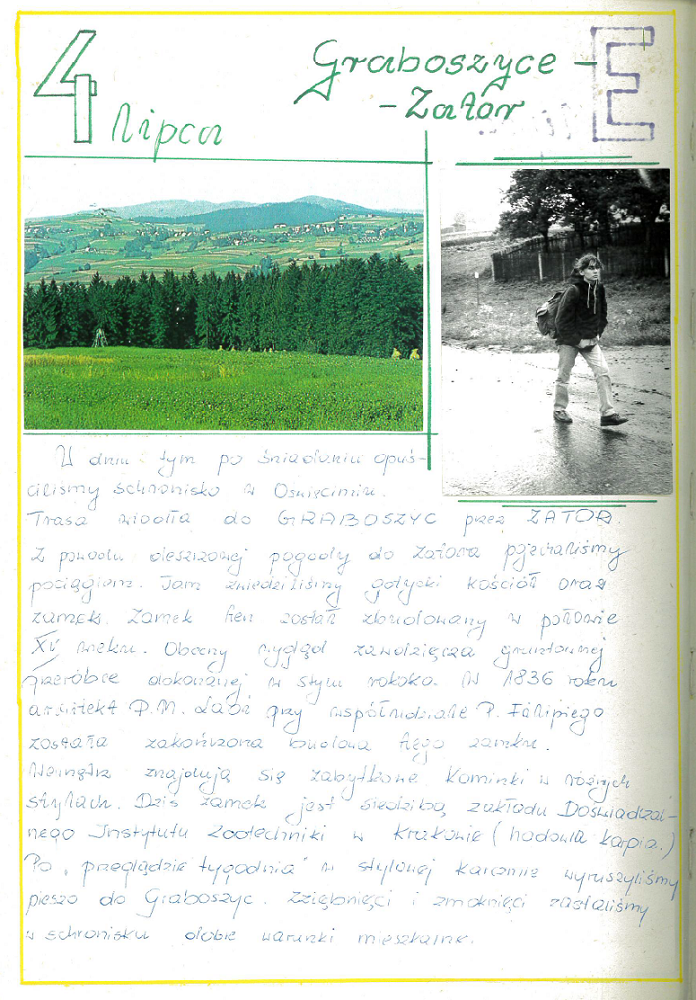 4 lipca
Graboszyce -
- Zator
E
W dniu tym po śniadaniu opuś-
ciliśmy schronisko w Oświęcimiu.
Trasa wiodła do GRABOSZYC przez ZATOR.
Z powodu deszczowej pogody do Zatora pojechaliśmy
pociągiem. Tam zwiedziliśmy gotycki kościół oraz
zamek. Zamek ten został zbudowany w połowie
XV wieku. Obecny wygląd zawdzięcza gruntownej
przeróbce dokonanej w stylu rokoko. W 1836 roku
architekt P.M. przy współudziale P. Filipiego
została zakończona budowa tego zamku.
Wewnątrz znajdują się zabytkowe kominki w różnych
stylach. Dziś zamek jest siedzibą zakładu Doświadczal-
nego Instytutu Zootechniki w Krakowie (hodowla karpia.)
Po „przeglądzie tygodnia" w stylowej karczmie wyruszyliśmy
pieszo do Graboszyc. Zziębnięci i zmoknięci zastaliśmy
w schronisku dobre warunki mieszkalne.